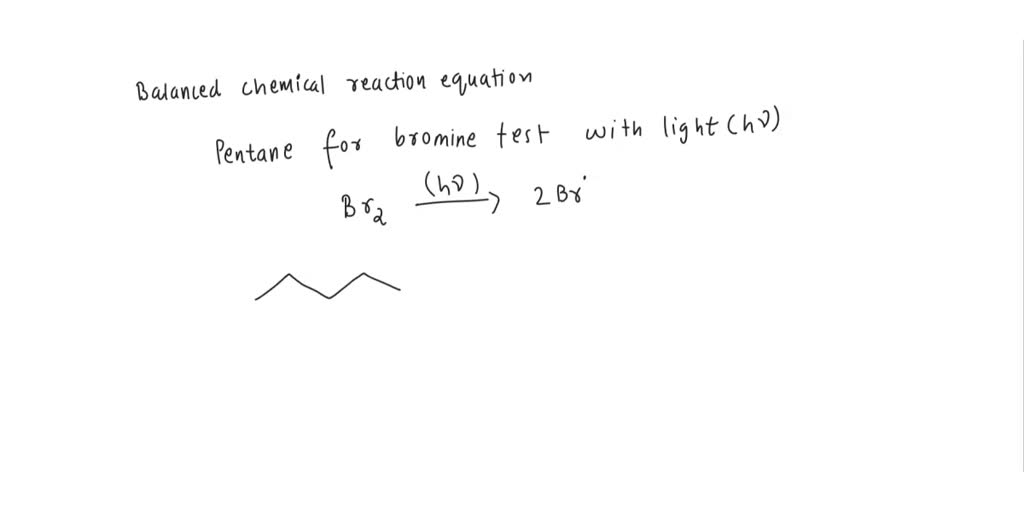 Balanced chemical reaction equation
Pentane for bromine test with light (hν)
Br₂ (hν)→ 2Br˙